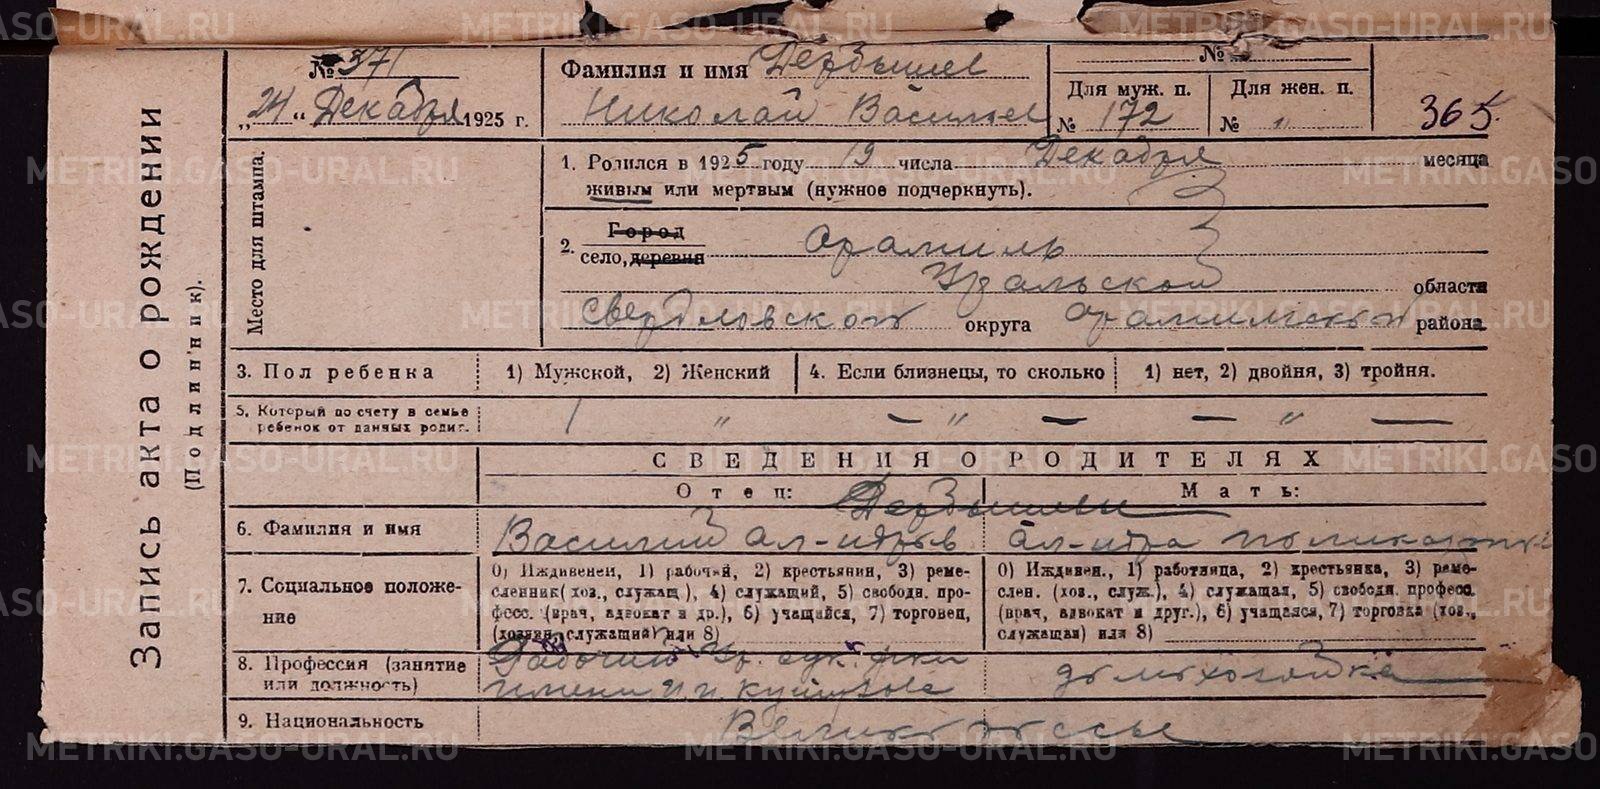 Запись акта о рождении
(Подлинник).
№ 371
„24“ Декабря 1925 г.
Место для штампа.
Фамилия и имя Дербышев
Николай Васильев
№
Для муж. п.
№ 172
Для жен. п.
№ "
365.
1. Родился в 1925 году 19 числа Декабря месяца
живым или мертвым (нужное подчеркнуть).
2. Город
село, деревня Арамиль
Уральской области
Свердловского округа Арамильского района
3. Пол ребенка 1) Мужской, 2) Женский 4. Если близнецы, то сколько 1) нет, 2) двойня, 3) тройня.
5. Который по счету в семье
ребенок от данных родит. 1 " — " — — " —
СВЕДЕНИЯ О РОДИТЕЛЯХ
Отец: Мать:
Дербышевы
6. Фамилия и имя Василий Ал-ндров Ал-ндра
7. Социальное положе-
ние
0) Иждивенец, 1) рабочий, 2) крестьянин, 3) реме-
сленник (хоз., служащ.), 4) служащий, 5) свободн. про-
фесс. (врач, адвокат и др.), 6) учащийся, 7) торговец,
(хозяин, служащий) или 8)
0) Иждивен., 1) работница, 2) крестьянка, 3) реме-
слен. (хоз., служ.), 4) служащая, 5) свободн. професс.
(врач, адвокат и друг.), 6) учащаяся, 7) торговка (хоз.,
служащая) или 8)
8. Профессия (занятие
или должность)
Рабочий сук. ф-ки
имени
домохозяйка
9. Национальность Великороссы
METRIKI.GASO-URAL.RU